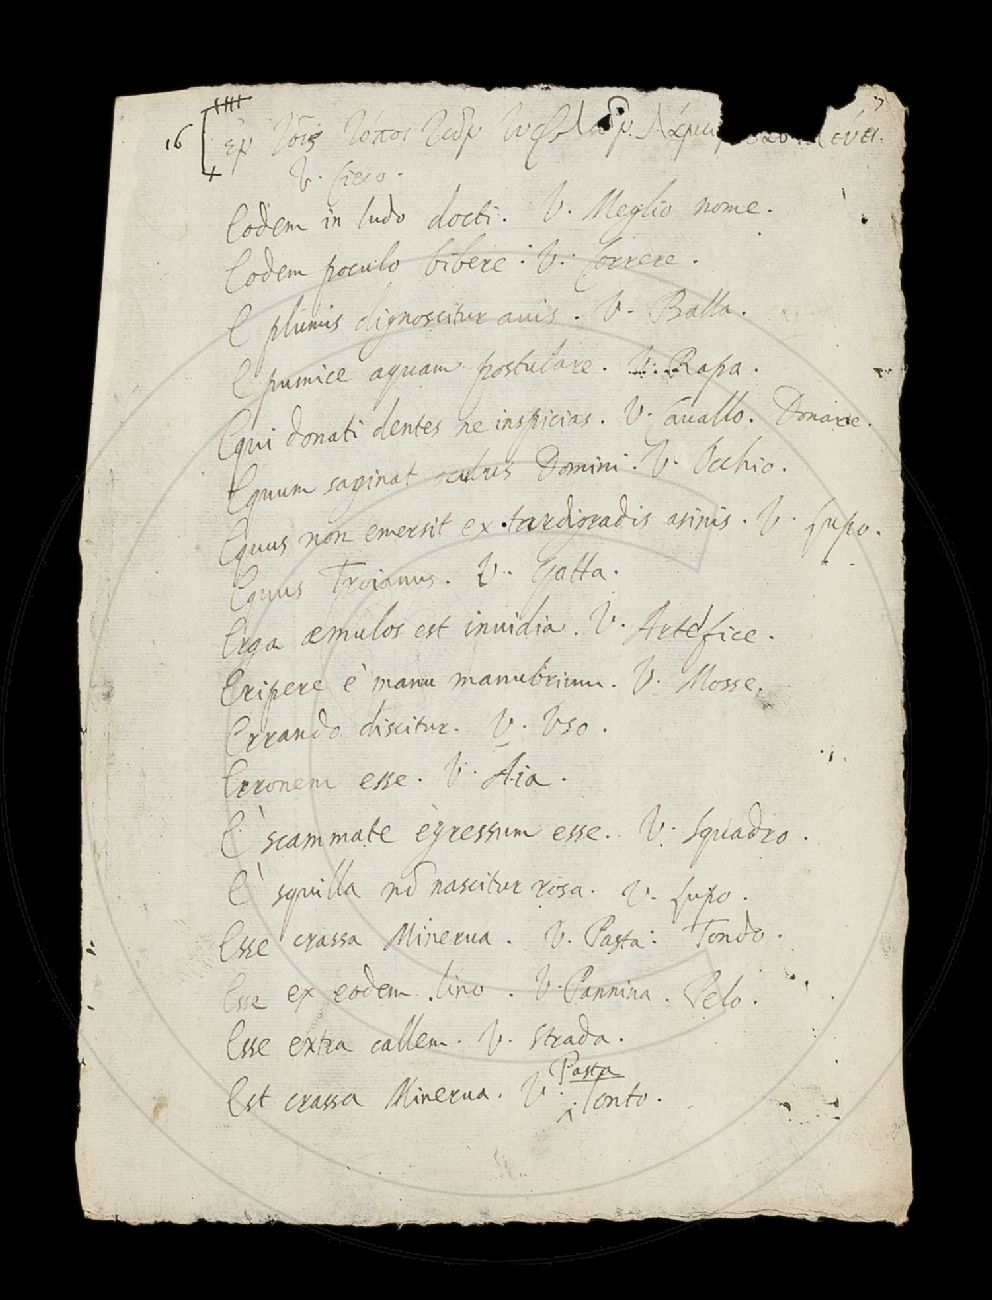 16
ἐν τοῖς τόπος τῶν
V. Cieco.
Eodem in ludo docti. V. Meglio nome.
Eodem poculo bibere. V. Correre.
E plumis dignoscitur avis. V. Balla.
E pumice aquam postulare. V. Rapa.
Equi donati dentes ne inspicias. V. Cauallo. Donare.
Equum saginat oculus Domini. V. Occhio.
Equus non emersit ex tardigradis asinis. V. Lupo.
Equus Troianus. V. Gatta.
Erga æmulos est inuidia. V. Artefice.
Eripere è manu manubrium. V. Mosse.
Errando discitur. V. Vso.
Erronem esse. V. Aia.
E' scammate egressum esse. V. Squadro.
E' squilla nō nascitur rosa. V. Lupo.
Esse crassa Minerua. V. Pasta. Tondo.
Esse ex eodem lino. V. Pannina. Pelo.
Esse extra callem. V. Strada.
Est crassa Minerua. V. Pasta Tonto.